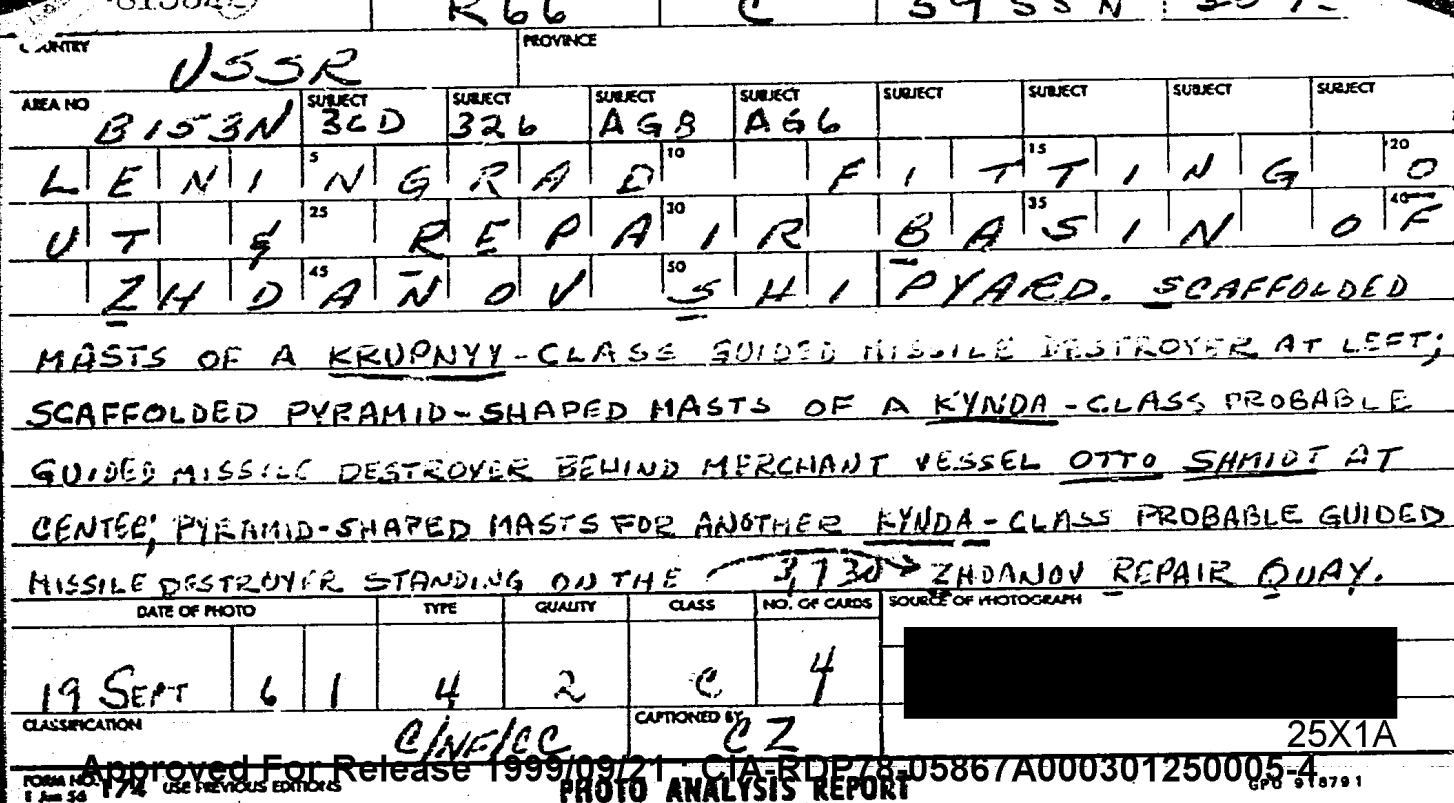 R66 C
COUNTRY PROVINCE
USSR
AREA NO SUBJECT SUBJECT SUBJECT SUBJECT SUBJECT SUBJECT SUBJECT SUBJECT
B153N 36D 326 AG8 AG6
5 10 15 20
LENINGRAD FITTING O
25 30 35 40
UT & REPAIR BASIN OF
45 50
ZHDANOV SHIPYARD. SCAFFOLDED
MASTS OF A KRUPNYY-CLASS GUIDED MISSILE DESTROYER AT LEFT;
SCAFFOLDED PYRAMID-SHAPED MASTS OF A KYNDA-CLASS PROBABLE
GUIDED MISSILE DESTROYER BEHIND MERCHANT VESSEL OTTO SHMIDT AT
CENTER; PYRAMID-SHAPED MASTS FOR ANOTHER KYNDA-CLASS PROBABLE GUIDED
MISSILE DESTROYER STANDING ON THE 3,730 ZHDANOV REPAIR QUAY.
DATE OF PHOTO TYPE QUALITY CLASS NO. OF CARDS SOURCE OF PHOTOGRAPH
19 SEPT 6 1 4 2 C 4
CLASSIFICATION CAPTIONED BY
C/NF/CC CZ
25X1A
Approved For Release 1999/09/21 : CIA-RDP78-05867A000301250005-4
FORM NO. 174 USE PREVIOUS EDITIONS PHOTO ANALYSIS REPORT GPO 918791
1 Jun 56